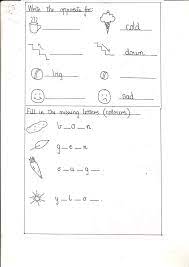 Write the opposite for:
cold
down
big
sad
Fill in the missing letters (colours)
b _ o _ n
g _ e _ n
o _ a _ g _
y _ l _ o _